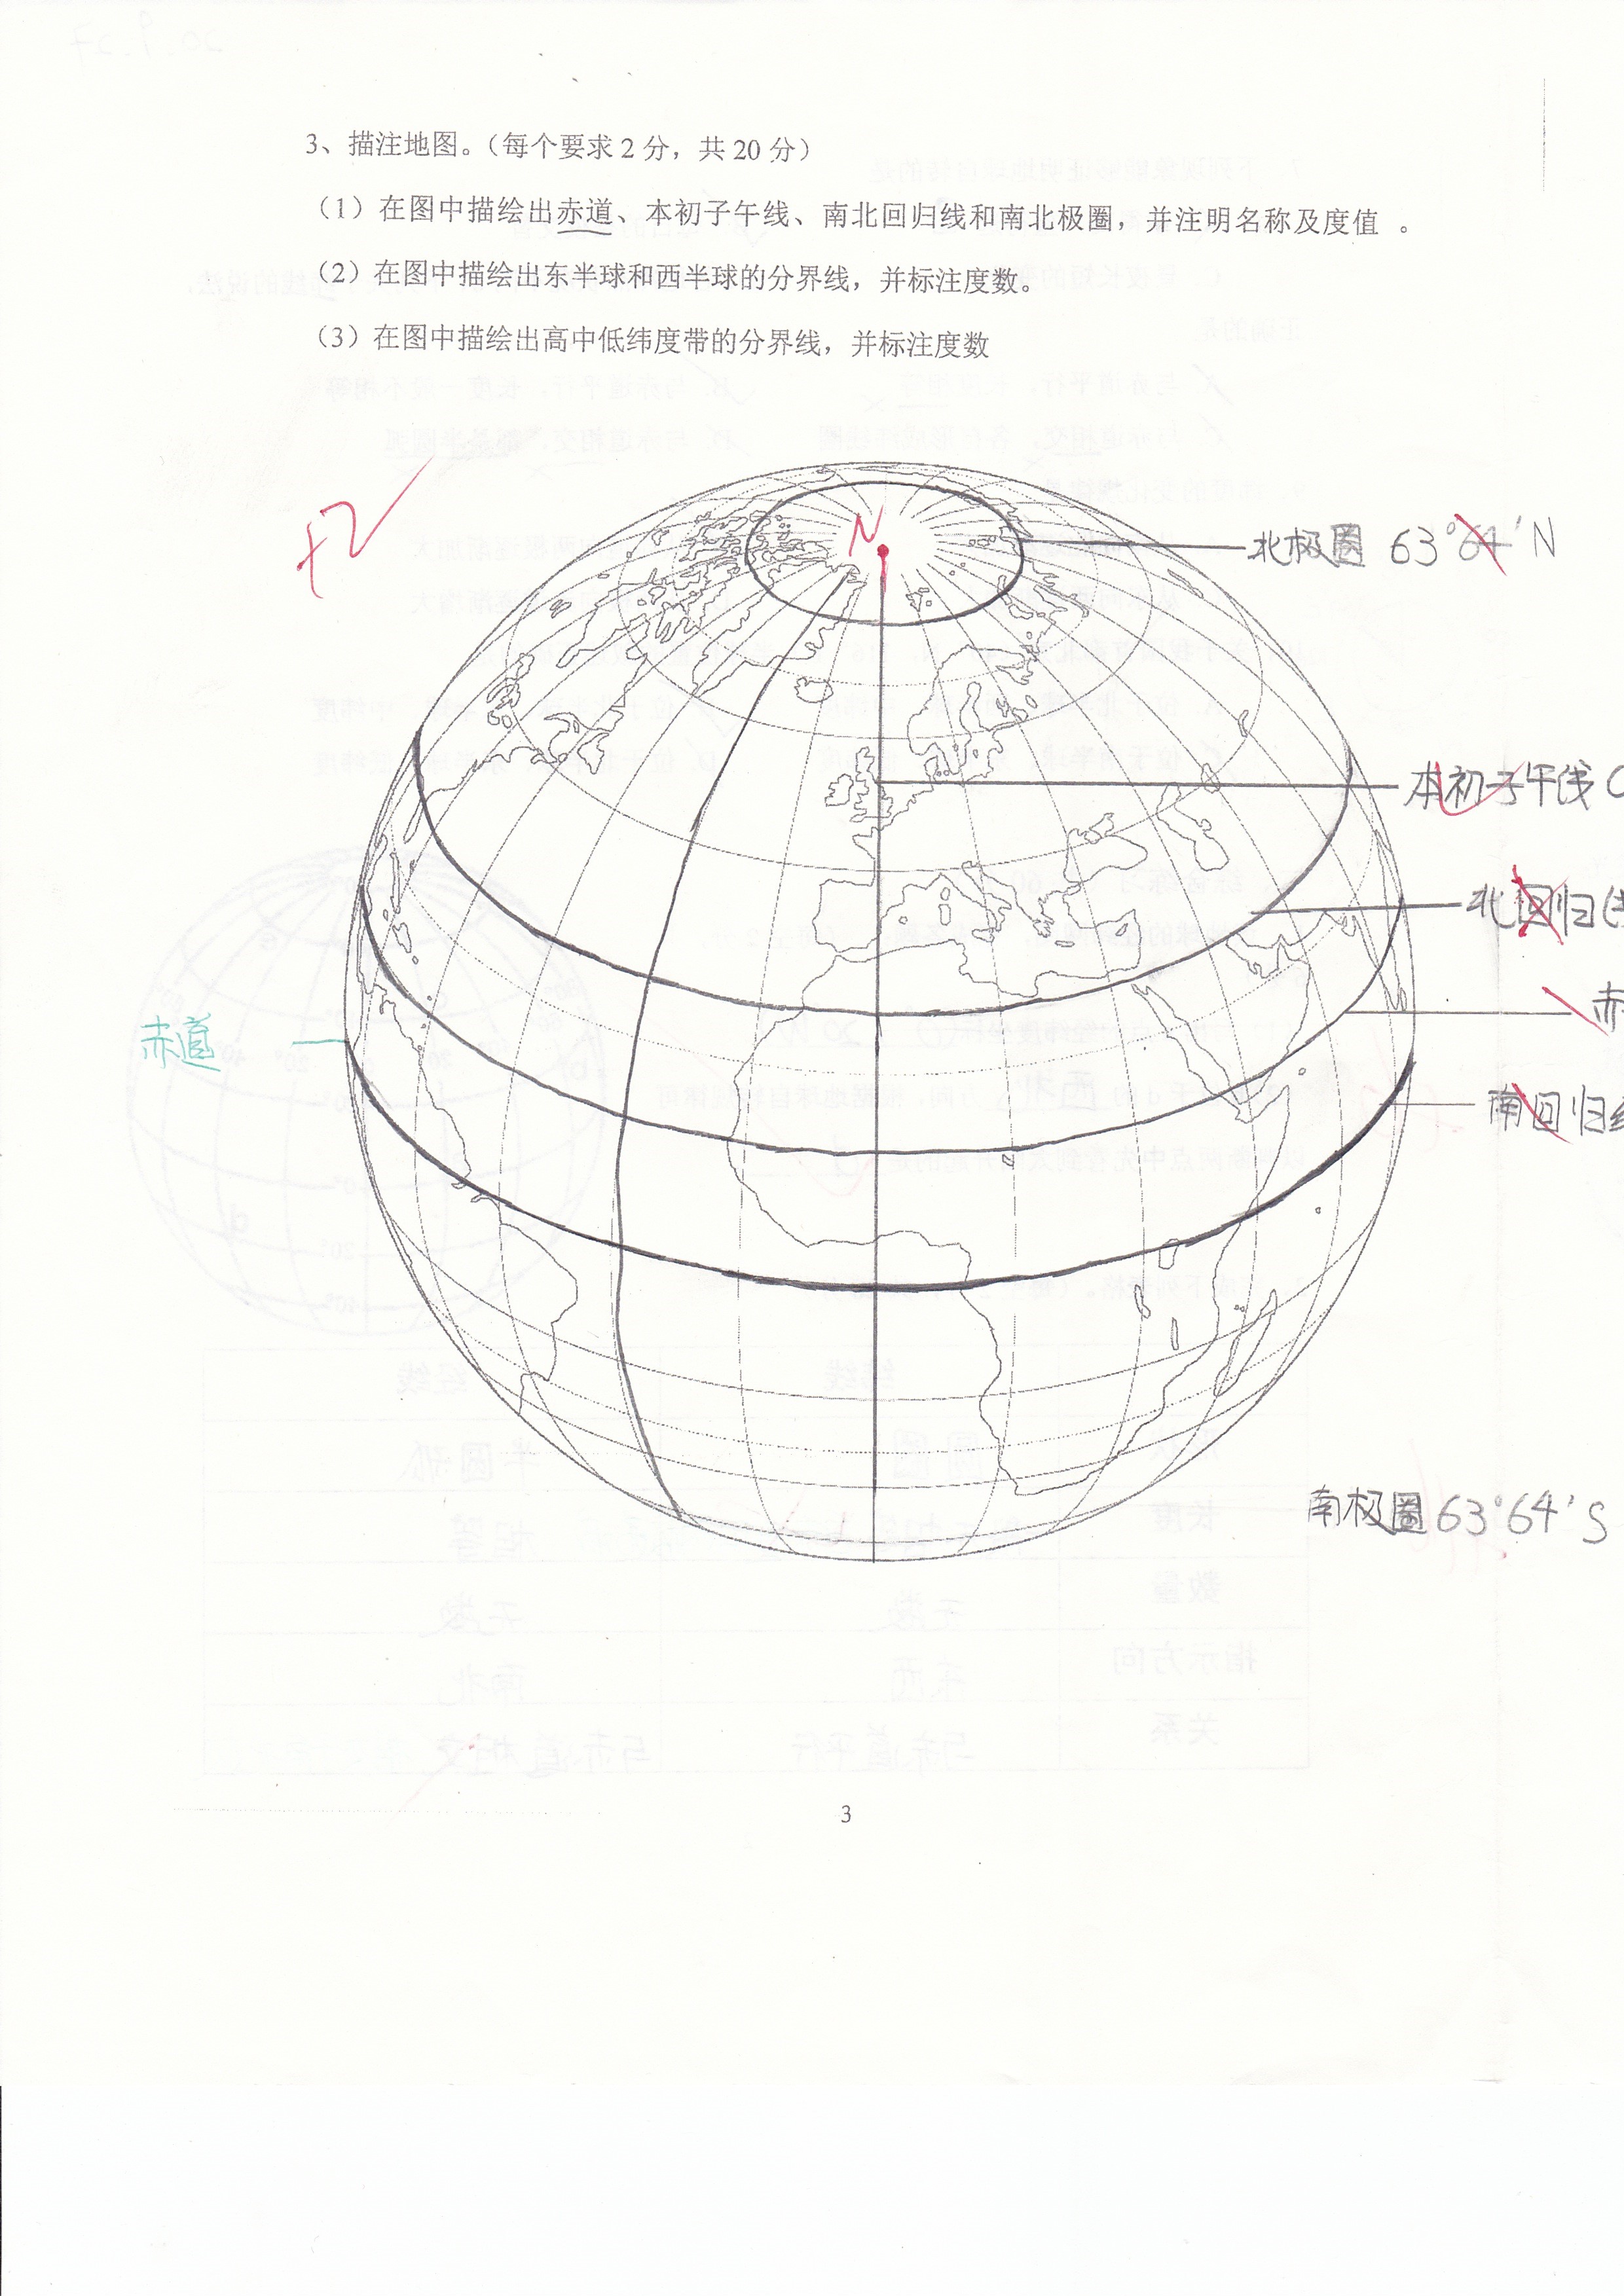 3、描注地图。（每个要求2分，共20分）
（1）在图中描绘出赤道、本初子午线、南北回归线和南北极圈，并注明名称及度值 。
（2）在图中描绘出东半球和西半球的分界线，并标注度数。
（3）在图中描绘出高中低纬度带的分界线，并标注度数
+2
N
北极圈 63°64'N
本初子午线
北回归
赤
赤道
南回归
南极圈 63°64'S
3